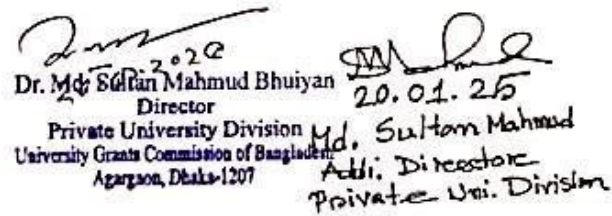 Dr. Md. Sultan Mahmud Bhuiyan
Director
Private University Division
University Grants Commission of Bangladesh
Agargaon, Dhaka-1207
20.01.25
Md. Sultan Mahmud
Addi. Directore
Private Uni. Division